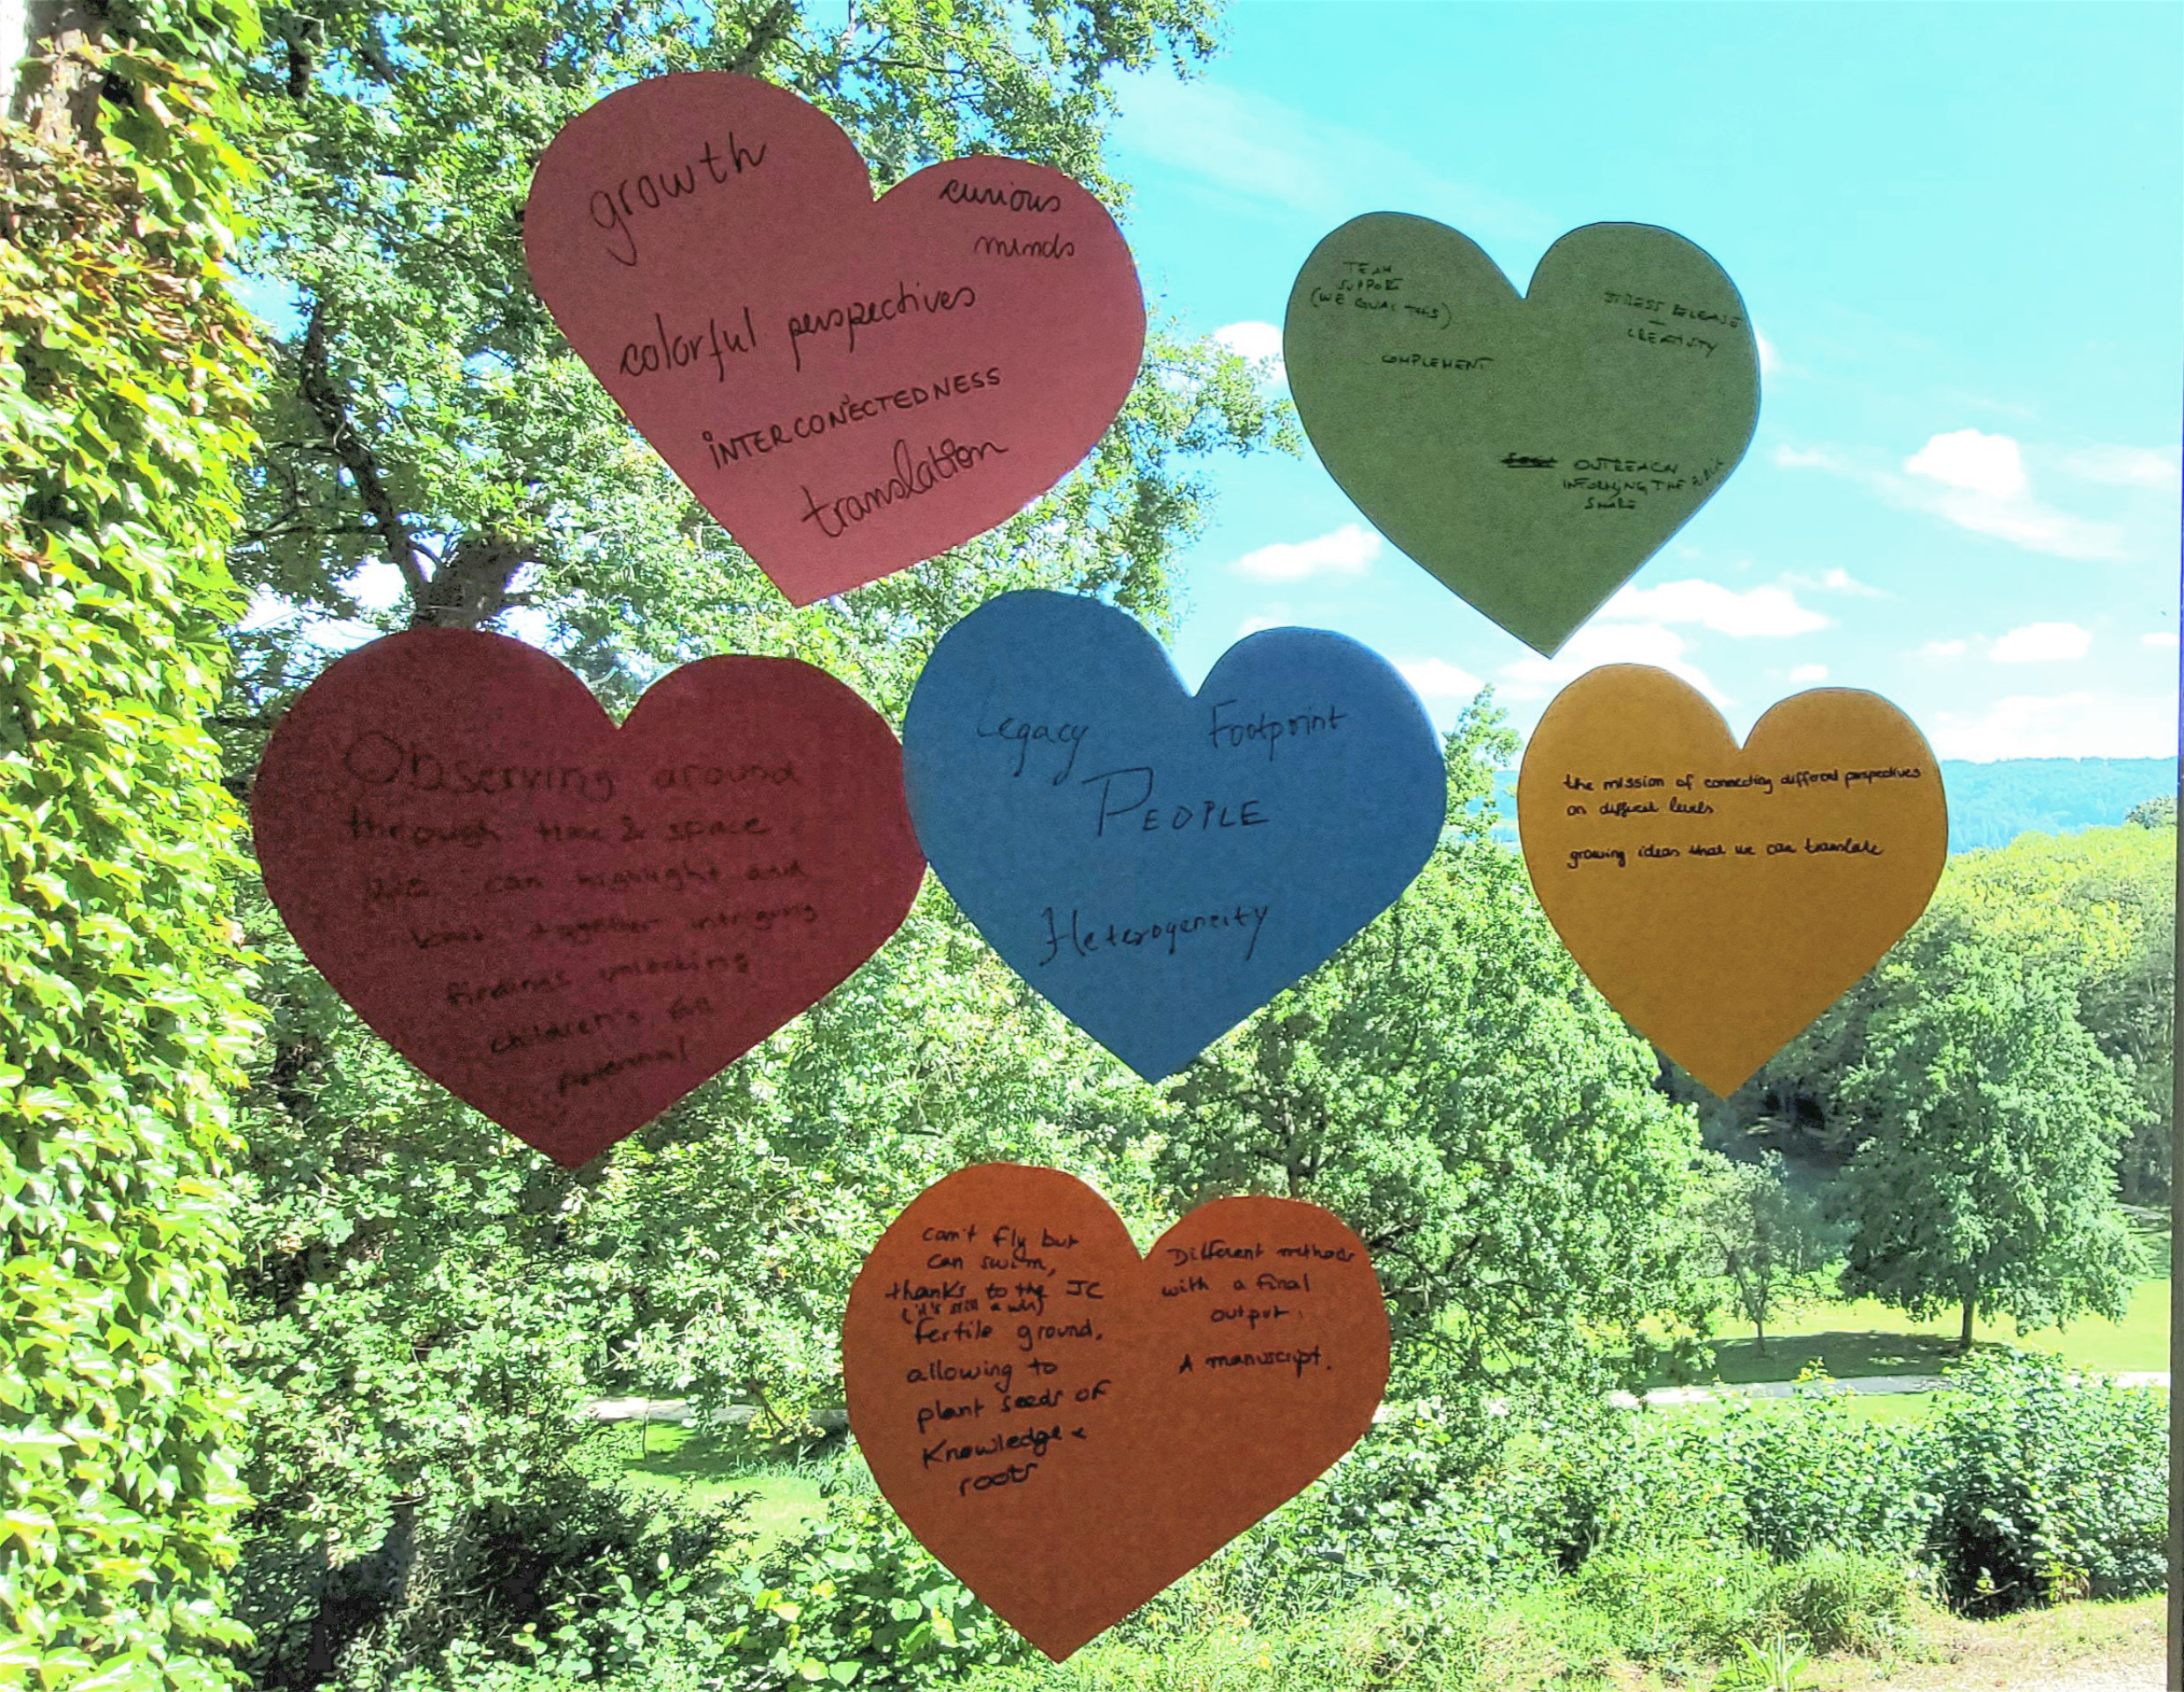 growth
curious
minds
colorful perspectives
INTERCONECTEDNESS
translation
TEAM
SUPPORT
(WE EQUAL THIS)
COMPLEMENT
STRESS RELEASE
CREATIVITY
OUTREACH
INFORMING THE PUBLIC
SHARE
Observing around
through time & space
we can highlight and
together intriguing
findings unlocking
children's
potential
Legacy
Footprint
PEOPLE
Heterogeneity
the mission of connecting different perspectives
on different levels
growing ideas that we can translate
can't fly but
can swim,
thanks to the JC
(it's still a win)
fertile ground,
allowing to
plant seeds of
Knowledge &
roots
Different methods
with a final
output.
A manuscript.